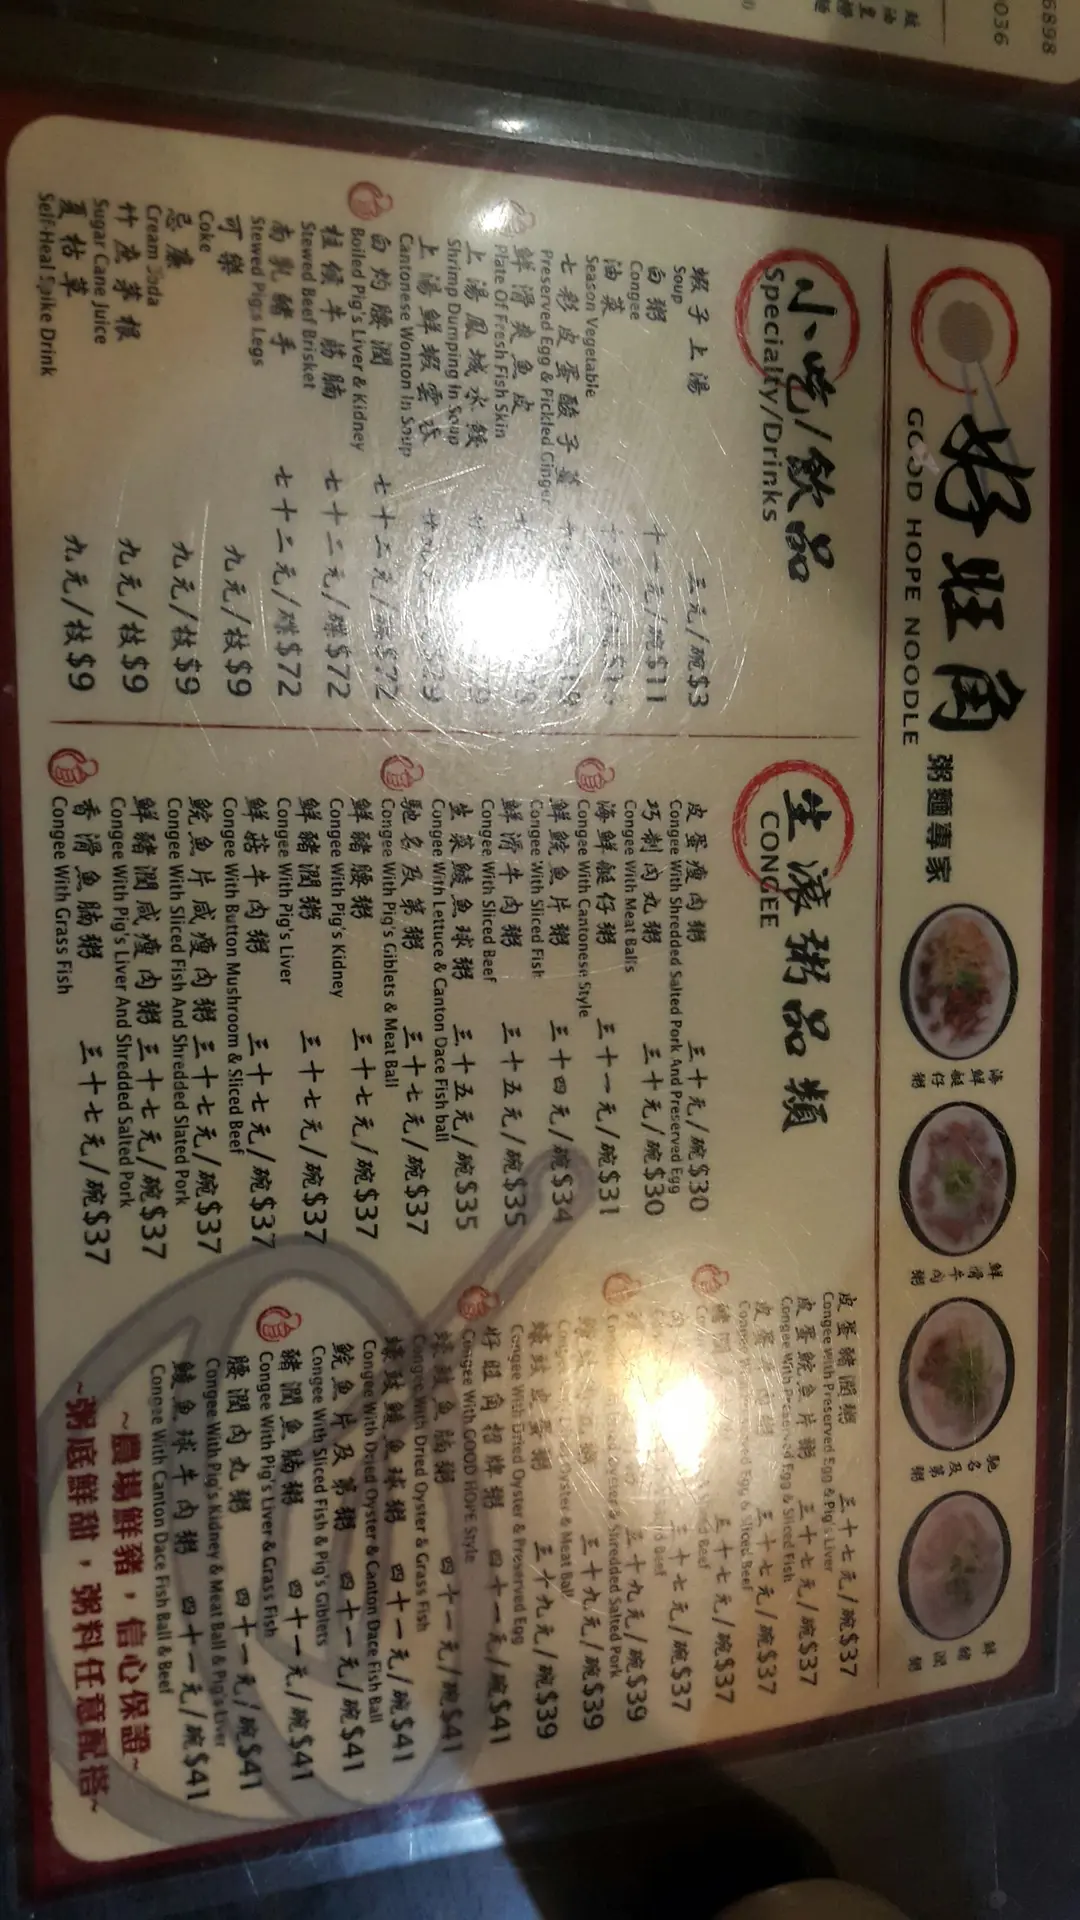 6898
036
好旺角 粥麵專家
GOOD HOPE NOODLE
海鮮艇仔粥
鮮滑牛肉粥
馳名及第粥
鮮豬潤粥
小吃/飲品
Specialty/Drinks
蝦子上湯 三元/碗$3
Soup
白粥 十一元/碗$11
Congee
油菜
Season Vegetable
七彩皮蛋酸子薑
Preserved Egg & Pickled Ginger
鮮滑爽魚皮
Plate Of Fresh Fish Skin
上湯鳳城水餃
Shrimp Dumping In Soup
上湯鮮蝦雲吞
Cantonese Wonton In Soup
白灼腰潤 七十二元/碟$72
Boiled Pig's Liver & Kidney
柱候牛筋腩 七十二元/碟$72
Stewed Beef Brisket
南乳豬手 七十二元/碟$72
Stewed Pig's Legs
可樂 九元/枝$9
Coke
忌廉 九元/枝$9
Cream Soda
竹蔗茅根 九元/枝$9
Sugar Cane Juice
夏枯草 九元/枝$9
Self-Heal Spike Drink
生滾粥品類
CONGEE
皮蛋瘦肉粥 三十元/碗$30
Congee With Shredded Salted Pork And Preserved Egg
巧制肉丸粥 三十元/碗$30
Congee With Meat Balls
海鮮艇仔粥 三十一元/碗$31
Congee With Cantonese Style
鮮鯇魚片粥 三十四元/碗$34
Congee With Sliced Fish
鮮滑牛肉粥 三十五元/碗$35
Congee With Sliced Beef
生菜鯪魚球粥 三十五元/碗$35
Congee With Lettuce & Canton Dace Fish ball
馳名及第粥 三十七元/碗$37
Congee With Pig's Giblets & Meat Ball
鮮豬腰粥 三十七元/碗$37
Congee With Pig's Kidney
鮮豬潤粥 三十七元/碗$37
Congee With Pig's Liver
鮮菇牛肉粥 三十七元/碗$37
Congee With Button Mushroom & Sliced Beef
鯇魚片咸瘦肉粥 三十七元/碗$37
Congee With Sliced Fish And Shredded Slated Pork
鮮豬潤咸瘦肉粥 三十七元/碗$37
Congee With Pig's Liver And Shredded Salted Pork
香滑魚腩粥 三十七元/碗$37
Congee With Grass Fish
皮蛋豬潤粥 三十七元/碗$37
Congee With Preserved Egg & Pig's Liver
皮蛋鯇魚片粥 三十七元/碗$37
Congee With Preserved Egg & Sliced Fish
皮蛋牛肉粥 三十七元/碗$37
Congee With Preserved Egg & Sliced Beef
三十七元/碗$37
Beef
三十七元/碗$37
Beef
三十九元/碗$39
Dried Oyster & Shredded Salted Pork
三十九元/碗$39
Oyster & Meat Ball
蠔豉皮蛋粥 三十九元/碗$39
Congee With Dried Oyster & Preserved Egg
好旺角招牌粥 四十一元/碗$41
Congee With GOOD HOPE Style
蠔豉魚腩粥 四十一元/碗$41
Congee With Dried Oyster & Grass Fish
蠔豉鯪魚球粥 四十一元/碗$41
Congee With Dried Oyster & Canton Dace Fish Ball
鯇魚片及第粥 四十一元/碗$41
Congee With Sliced Fish & Pig's Giblets
豬潤魚腩粥 四十一元/碗$41
Congee With Pig's Liver & Grass Fish
腰潤肉丸粥 四十一元/碗$41
Congee With Pig's Kidney & Meat Ball & Pig's Liver
鯪魚球牛肉粥 四十一元/碗$41
Congee With Canton Dace Fish Ball & Beef
~農場鮮豬，信心保證~
~粥底鮮甜，粥料任意配搭~